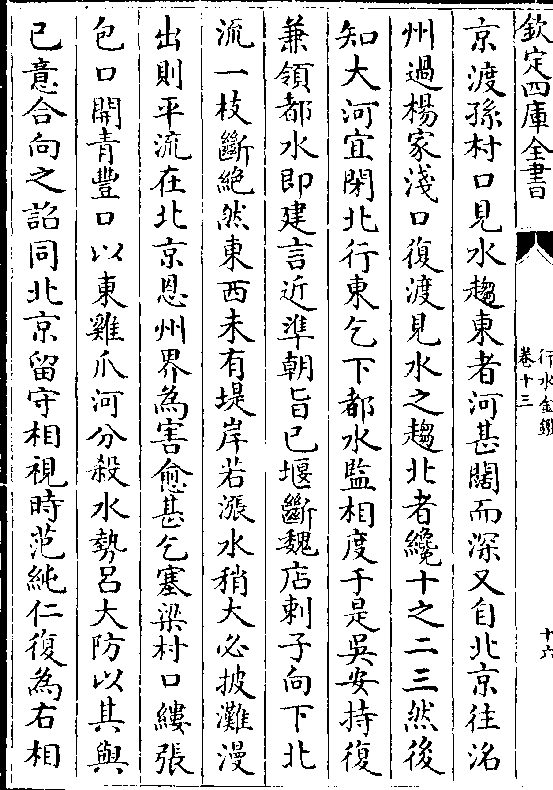 欽定四庫全書
行水金鑑
卷十三
十六
京渡孫村口見水趨東者河甚闊而深又自北京往洺
州過楊家淺口復渡見水之趨北者纔十之二三然後
知大河宜閉北行東乞下都水監相度于是吳安持復
兼領都水即建言近準朝旨已堰斷魏店刺子向下北
流一枝斷絶然東西未有堤岸若漲水稍大必披灘漫
出則平流在北京恩州界為害愈甚乞塞梁村口縷張
包口開青豐口以東雞爪河分殺水勢呂大防以其與
己意合向之詔同北京留守相視時范純仁復為右相